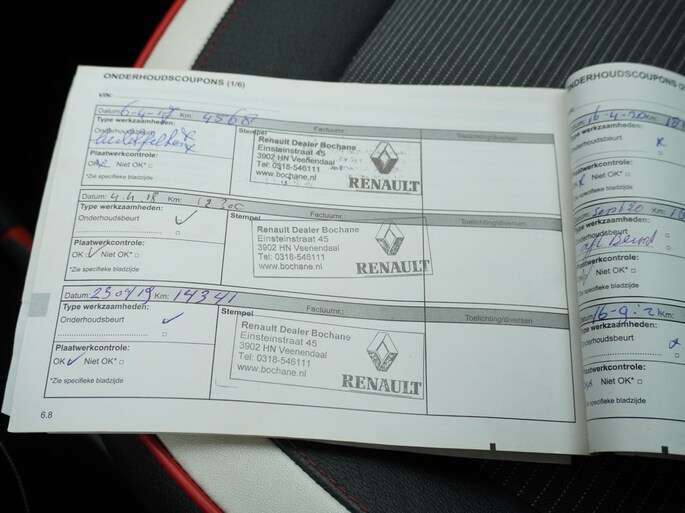 ONDERHOUDSCOUPONS (1/6)
VIN:
Datum: 6-4-17 Km: 4568
Type werkzaamheden:
Onderhoudsbeurt
Plaatwerkcontrole:
OK Niet OK*
*Zie specifieke bladzijde
Factuurnr.:
Stempel
Renault Dealer Bochane
Einsteinstraat 45
3902 HN Veenendaal
Tel: 0318-546111
www.bochane.nl
RENAULT
Toelichting/diversen
Datum: 4.4.18 Km:
Type werkzaamheden:
Onderhoudsbeurt
Plaatwerkcontrole:
OK Niet OK*
*Zie specifieke bladzijde
Factuurnr.:
Stempel
Renault Dealer Bochane
Einsteinstraat 45
3902 HN Veenendaal
Tel: 0318-546111
www.bochane.nl
RENAULT
Toelichting/diversen
Datum: 230419 Km: 14341
Type werkzaamheden:
Onderhoudsbeurt
Plaatwerkcontrole:
OK Niet OK*
*Zie specifieke bladzijde
Factuurnr.:
Stempel
Renault Dealer Bochane
Einsteinstraat 45
3902 HN Veenendaal
Tel: 0318-546111
www.bochane.nl
RENAULT
Toelichting/diversen
6.8
ONDERHOUDSCOUPONS
Datum: 16-4-20 Km:
Type werkzaamheden:
Onderhoudsbeurt
Plaatwerkcontrole:
OK Niet OK*
*Zie specifieke bladzijde
Datum: Sept 20
Type werkzaamheden:
Onderhoudsbeurt
Plaatwerkcontrole:
Niet OK*
*Zie specifieke bladzijde
Datum: 16-9-21 Km:
Type werkzaamheden:
Onderhoudsbeurt
Plaatwerkcontrole:
OK Niet OK*
*Zie specifieke bladzijde